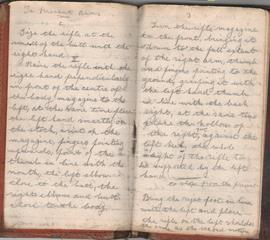 To Present Arms
I
Seize the rifle at the
small of the butt with the
right hand
II
Raise the rifle with the
right hand perpendicularly
in front of the centre of
the body magazine to the
left, at the same time place
the left hand smartly on
the stock, wrist on the
magazine, fingers pointing
upwards, point of the
thumb in line with the
mouth, the left elbow
close to the butt, the
right elbow and butt
close to the body
3
Turn the rifle magazine
to the front, bringing it
down to the full extent
of the right arm, thumb
and fingers pointing to the
ground, guiding it with
the left hand thumb
in line with the back
sight, at the same time
place the hollow of
the right, against the
left heel, the whole
weight of the rifle to
be supported by the left
hand
to slope from the present
I
Bring the right foot in line
with the left and place
the rifle on the left shoulder